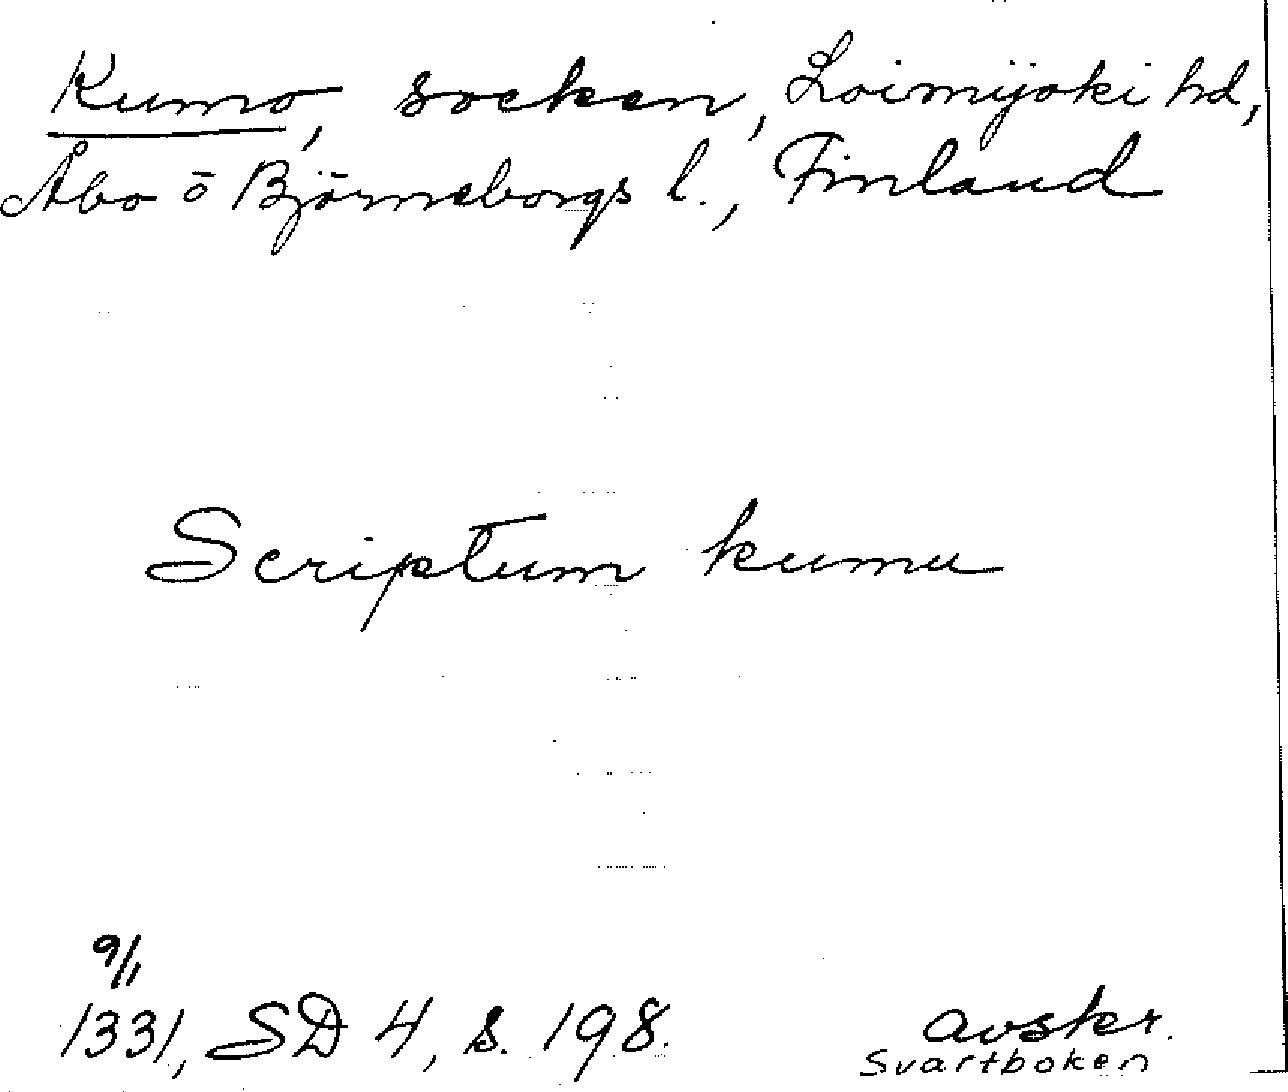 Kumo, socken, Loimijoki hd,
Åbo o Björneborgs l., Finland
Scriptum kumu
9/1
1331, SD 4, s. 198.
avskr.
Svartboken